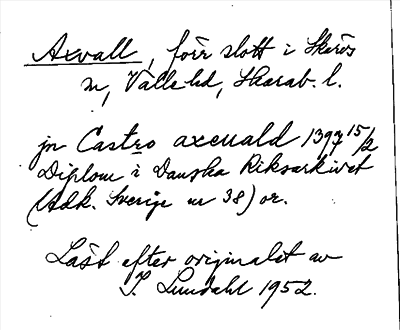 Axvall, förr slott i Skärvs
sn, Valle hd, Skarab. l.
jn Castro axeuald 1397 15/2
Diplom i Danska Riksarkivet
(Adk. Sverige nr 38) or.
Läst efter originalet av
I. Lundahl 1952.